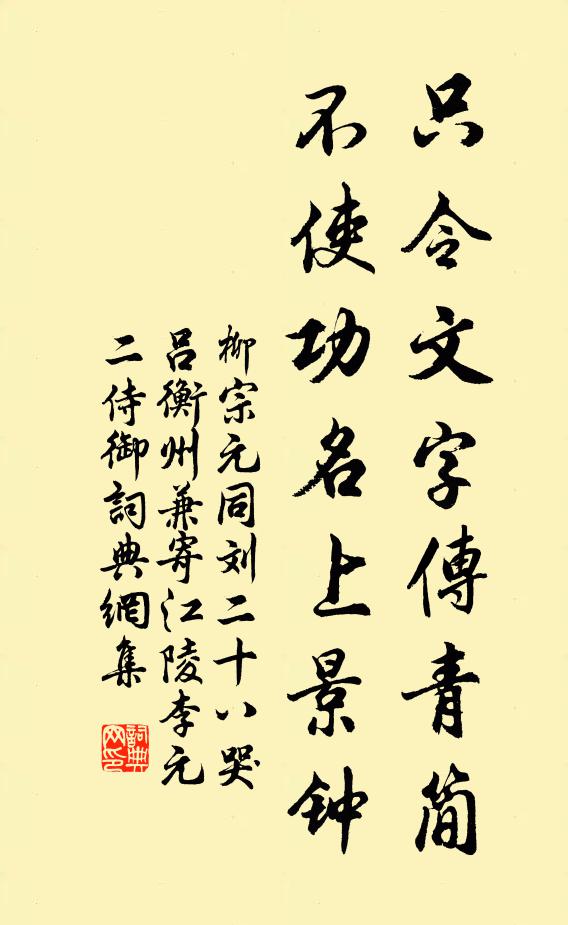 只令文字傳青简
不使功名上景钟
柳宗元同刘二十八哭
吕衡州兼寄江陵李元
二侍御詞典網集
詞典
网印